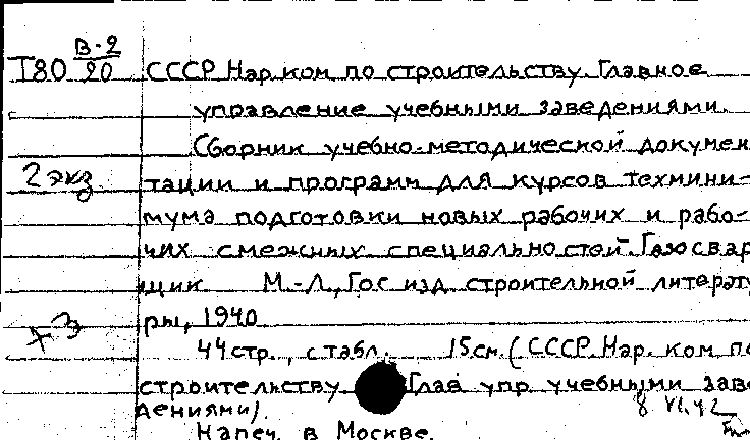 В-2
Т80 20 СССР Нар.ком по строительству. Главное
управление учебными заведениями.
Сборник учебно-методической докумен
2 экз. тации и программ для курсов техмини-
мума подготовки новых рабочих и рабо-
чих смежных специальностей. Газосвар
щик М.-Л., Гос изд. строительной литерату
ры, 1940
+3
44 стр., с табл. 15 см. (СССР. Нар. ком по
строительству. Глав упр учебными заве
дениями). 8 VI.42
Напеч. в Москве.